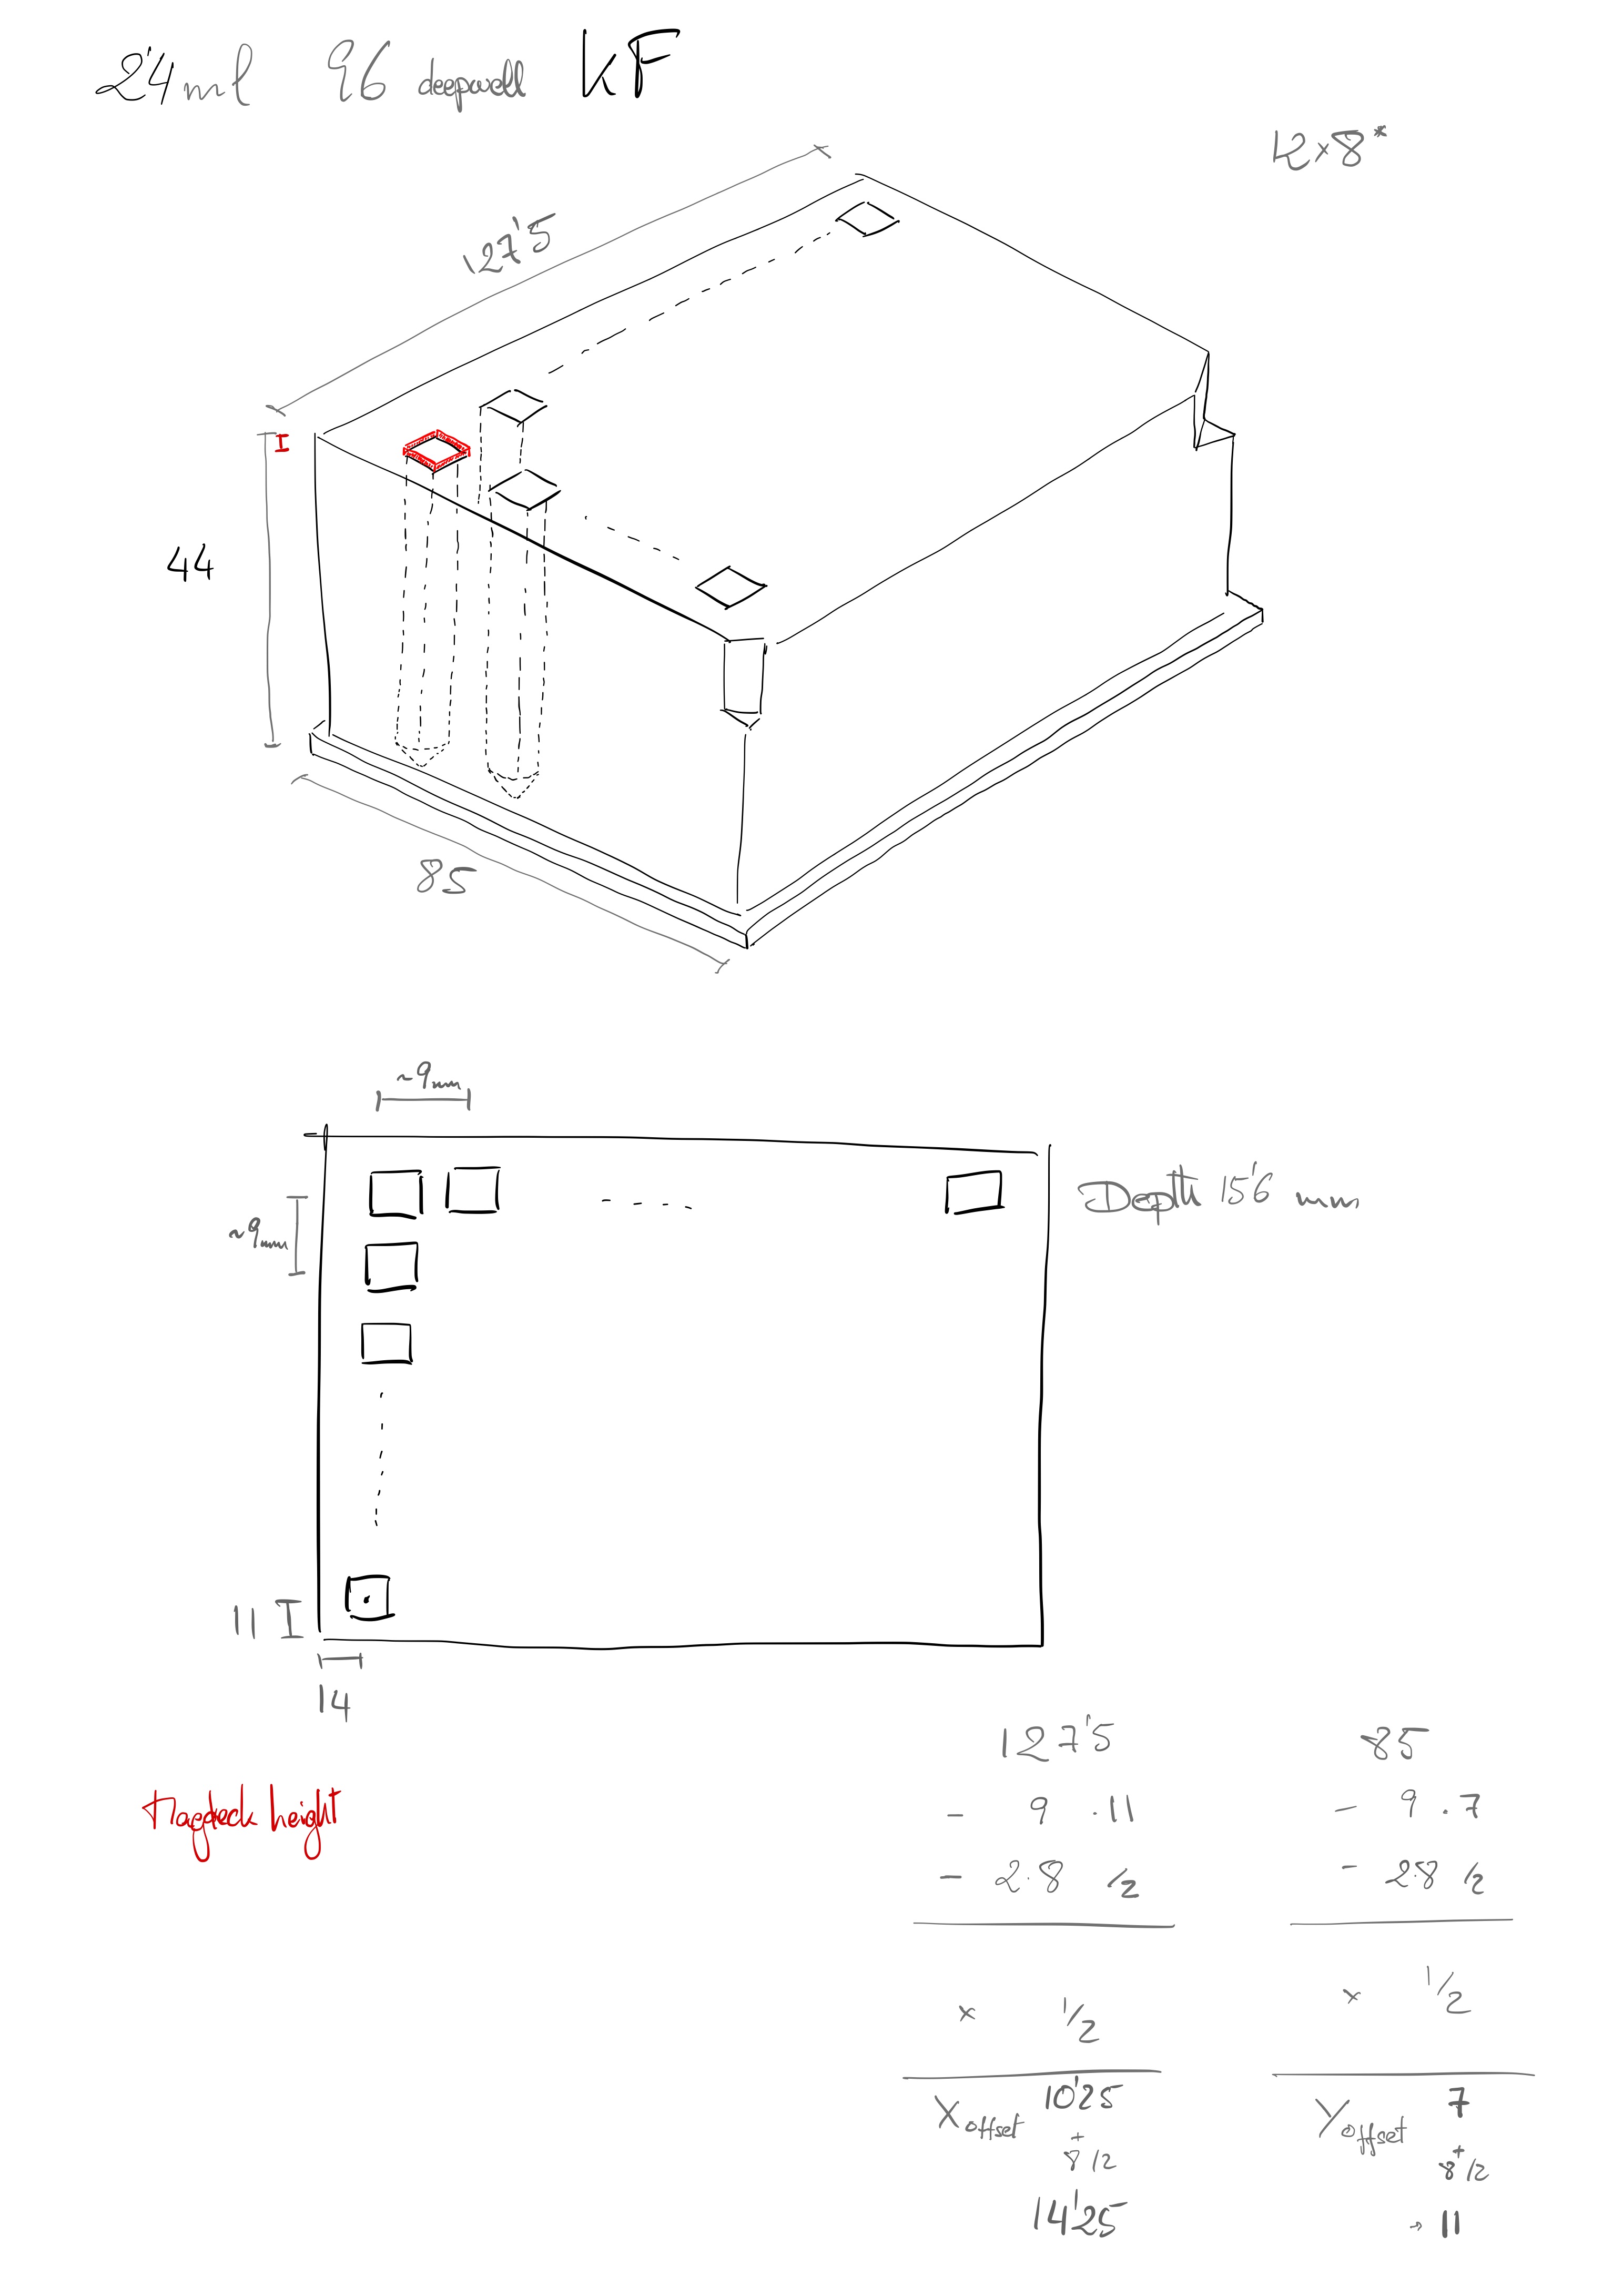 2'4 ml 96 deepwell KF
12×8*
127'5
I
44
85
~9mm
~9mm
Depth 15'6 mm
11
14
Magdeck height
127'5
- 9 · 11
- 2·8 /2
× 1/2
Xoffset 10'25
+
8/2
14'25
85
- 9 · 7
- 2·8 /2
× 1/2
Yoffset 7
+
8/2
→ 11